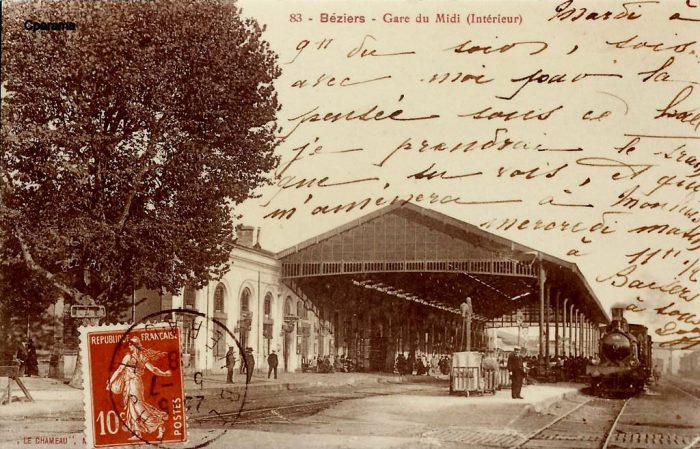 Cparama
83 - Béziers - Gare du Midi (Intérieur)
Mardi à
9h du soir, sois
avec moi pour la
pensée sous ce hall
je prendrai le train
que tu vois, et qui
m'amènera à
mercredi
à 11h
Baisers
à ton
RÉPUBLIQUE FRANÇAISE
10c POSTES
LE CHAMEAU